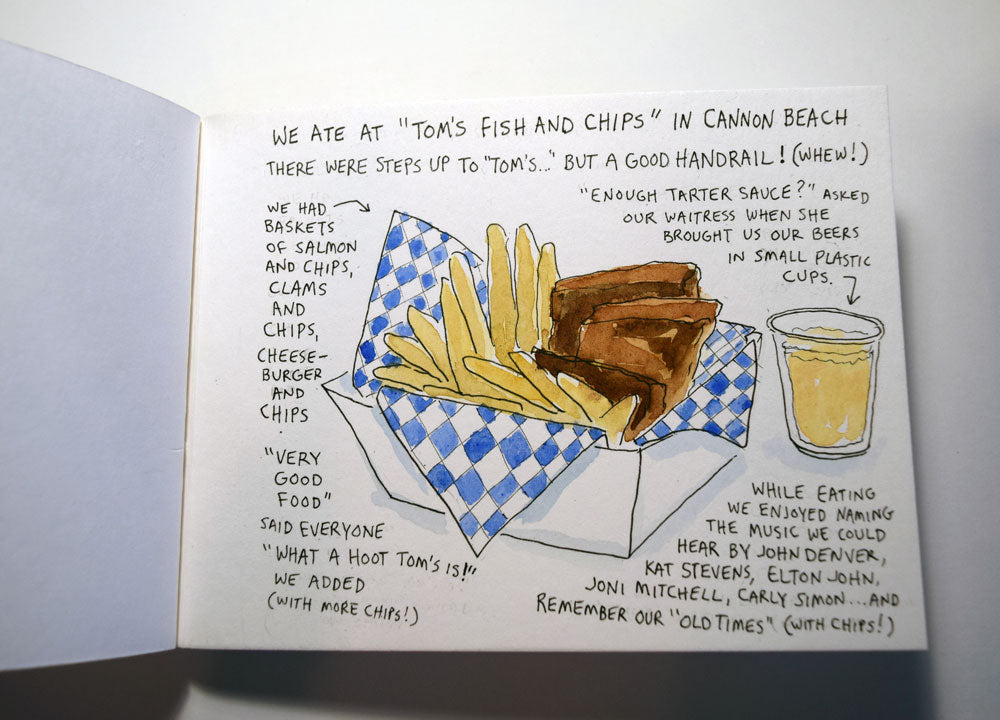 WE ATE AT "TOM'S FISH AND CHIPS" IN CANNON BEACH
THERE WERE STEPS UP TO "TOM'S..." BUT A GOOD HANDRAIL! (WHEW!)
WE HAD
BASKETS
OF SALMON
AND CHIPS,
CLAMS
AND
CHIPS,
CHEESE-
BURGER
AND
CHIPS
.
"VERY
GOOD
FOOD"
SAID EVERYONE
"WHAT A HOOT TOM'S IS!"
WE ADDED
(WITH MORE CHIPS!)
"ENOUGH TARTER SAUCE?" ASKED
OUR WAITRESS WHEN SHE
BROUGHT US OUR BEERS
IN SMALL PLASTIC
CUPS.
WHILE EATING
WE ENJOYED NAMING
THE MUSIC WE COULD
HEAR BY JOHN DENVER,
KAT STEVENS, ELTON JOHN,
JONI MITCHELL, CARLY SIMON....AND
REMEMBER OUR "OLD TIMES" (WITH CHIPS!)